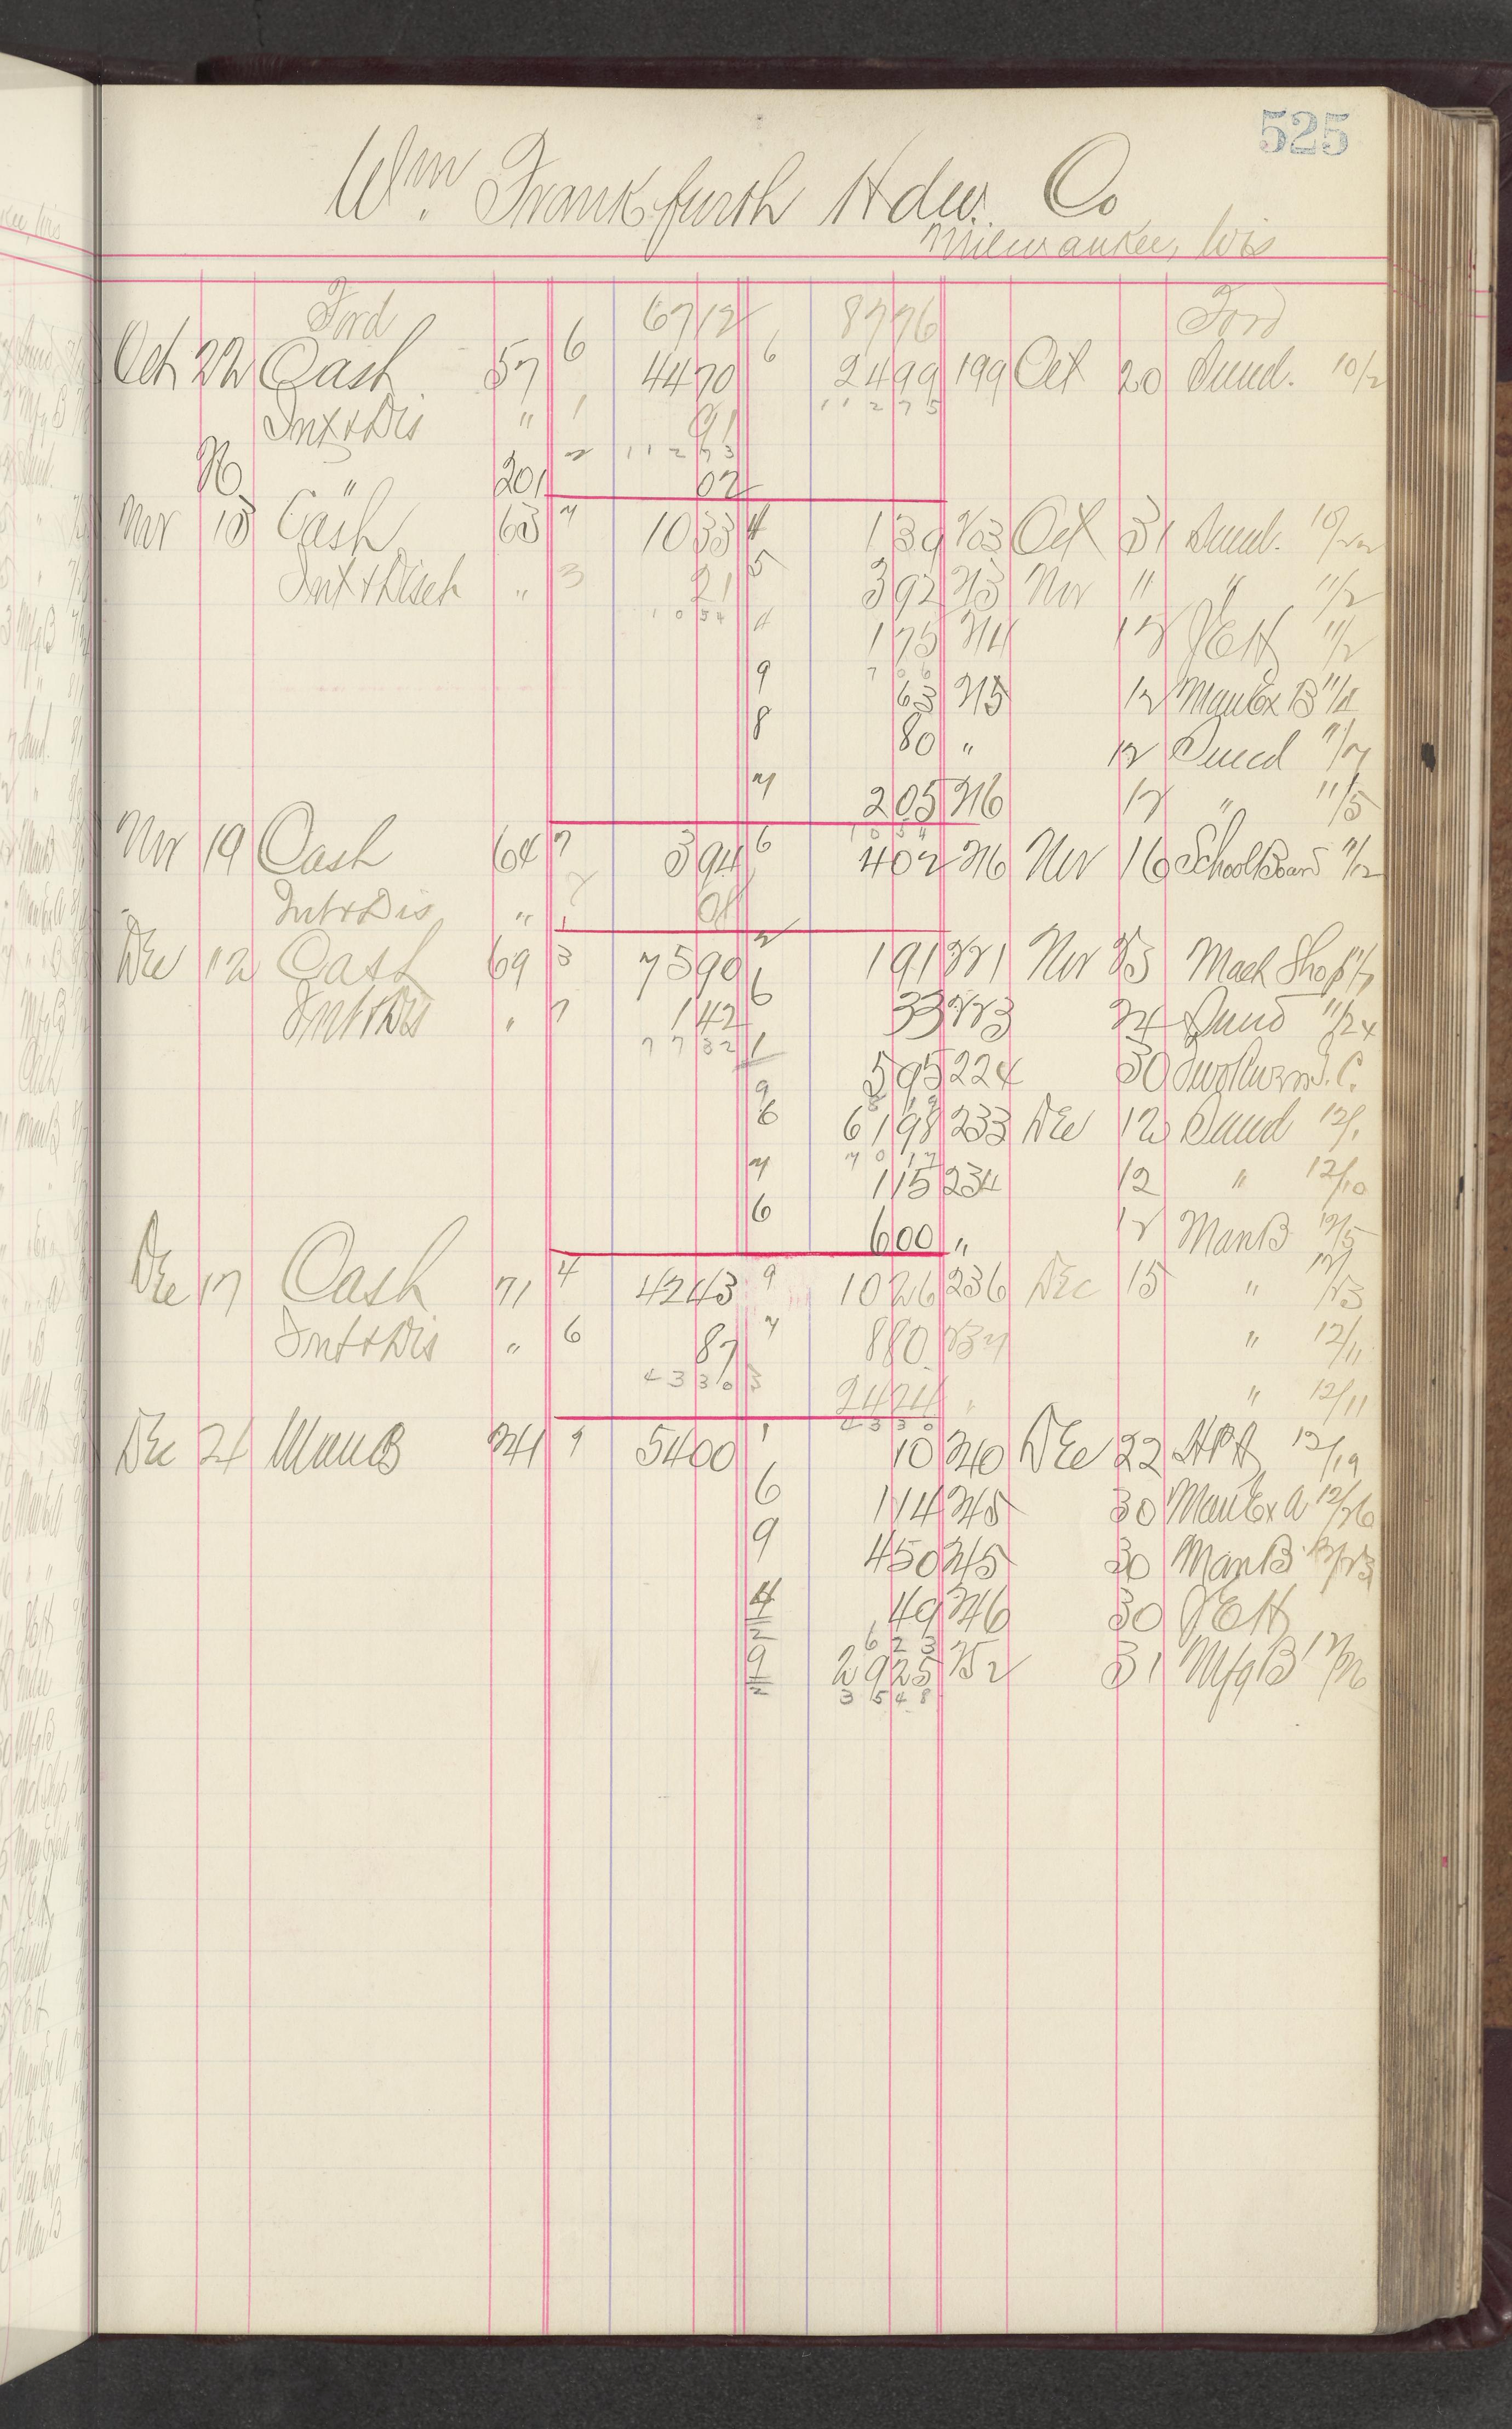 525
Wm. Frankfurth Hdw. Co
Milwaukee, Wis
Ford 67 12 87 76 Ford
Oct 22 Cash 57 6 44 70 6 24 99 199 Oct 20 Sund. 10/2
Int & Dis " 1 91 1 1 2 7 5
2 1 1 2 7 3
" 201 02
Nov 13 Cash 63 7 10 33 4 1 39 203 Oct 31 Sund. 10/22
Int & Disct " 3 21 5 3 92 213 Nov " " 11/2
1 0 5 4 4 1 75 214 12 JEH 11/2
7 0 6
9 63 215 12 Man Ex B 11/4
8 80 " 12 Sund 11/7
7 2 05 216 12 " 11/5
1 0 5 4
Nov 19 Cash 64 7 3 94 6 4 02 216 Nov 16 School Board 11/12
Int & Dis " 1 08
Dec 12 Cash 69 3 75 90 2 1 91 221 Nov 23 Mach Shop
Int & Dis " 7 1 42 6 33 223 24 Sund 11/24
7 7 3 2 1 5 95 224 30 J. C.
9
6 61 98 233 Dec 12 Sund 12/1
7 0 1 7
7 1 15 234 12 " 12/10
6 6 00 " 12 Man B 12/5
Dec 17 Cash 71 4 42 43 9 10 26 236 Dec 15 " 12/13
Int & Dis " 6 87 7 8 80 237 " 12/11
4 3 3 0 3 24 24 " " 12/11
4 3 3 0
Dec 21 Man B 241 9 54 00 1 10 240 Dec 22 12/19
6 1 14 245 30 Man Ex A 12/26
9 4 50 245 30 Man B 12/23
4 49 246 30 JEH
2 6 2 3
9 29 25 252 31 Mfg B 12/26
2 3 5 4 8